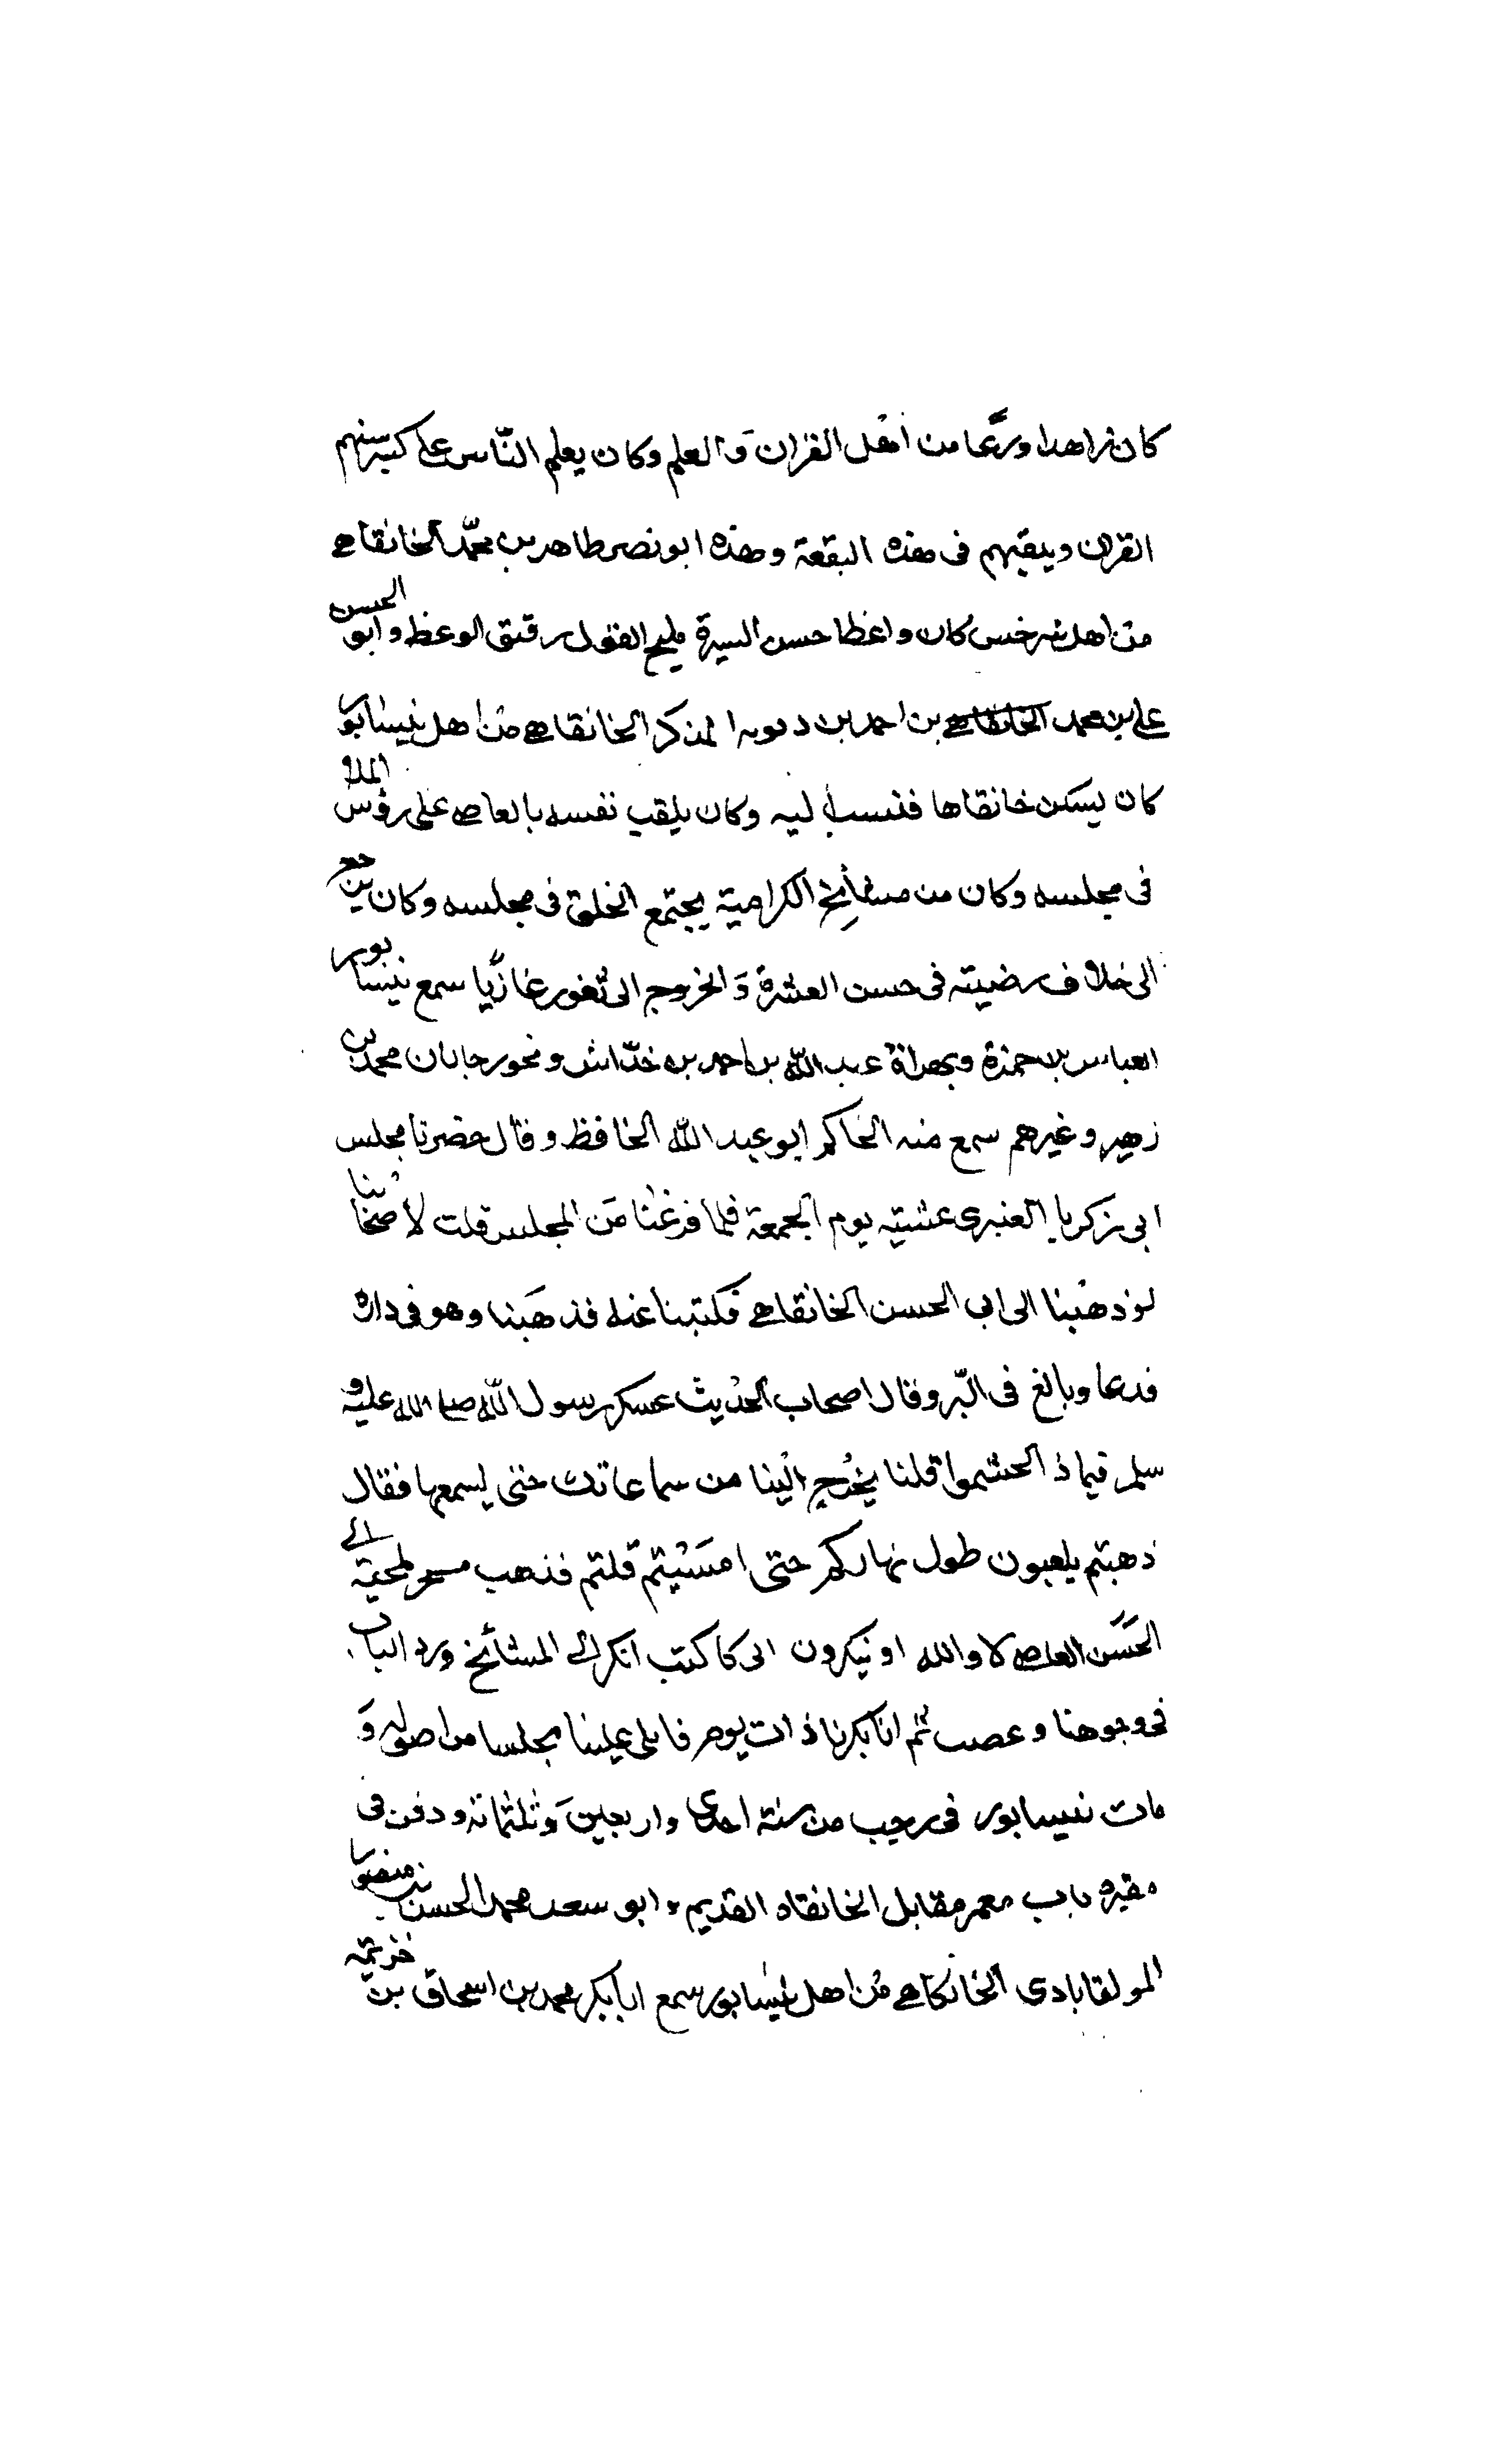 كان زاهدا ورعا من اهل القران والعلم وكان يعلم الناس على كبر سنهم
القران ويلقيهم فى هذه البقعة وهذه ابو نصر طاهر بن محمد الخانقاهى
من اهل سرخس كان واعظا حسن السيرة مليح القول رقيق الوعظ وابو الحسن
على بن محمد الخانقاهى بن احمد بن دلويه المذكر الخانقاهى من اهل نيسابور
كان يسكن خانقاها فنسب اليه وكان يلقب نفسه بالعاصى على رؤس الملا
فى مجلسه وكان من مشايخ الكرامية يجتمع الخلق فى مجلسه وكان
الى خلاف رضيته فى حسن العشرة والخروج الى ثغور غازيا سمع نيسابور
العباس بن حمزة وبهراة عبد الله بن احمد بن خداش وبجورجانان محمد بن
زهير وغيرهم سمع منه الحاكم ابو عبد الله الحافظ وقال حضرنا مجلس
ابى زكريا العنبرى عشية يوم الجمعة فلما فرغنا من المجلس قلت لاصحابنا
لو ذهبنا الى ابى الحسن الخانقاهى فكتبنا عنه فذهبنا وهو فى داره
فدعا وبالغ فى البر وقال اصحاب الحديث عسكر رسول الله صلى الله عليه و
سلم فيما ذا الحشموا قلنا يخرج الينا من سماعاتك حتى يسمعها فقال
ذهبتم يلعبون طول نهاركم حتى امسيتم قلتم فذهب لحية الى
الحسن العاصى لا والله او نيكرون الى كا كتب انكر الى المشائخ ورد الباب
فى وجوهنا وعصب ثم انا بكرنا ذات يوم فاملى علينا مجلسا من اصوله و
مات نيسابور فى رجب من سنة احدى واربعين وثلثمائة ودفن فى
مقبرة باب معمر مقابل الخانقاه القديم، ابو سعد محمد الحسن بن منصور
المولقابادى الخانكاهى من اهل نيسابور سمع ابا بكر محمد بن اسحاق بن خزيمة